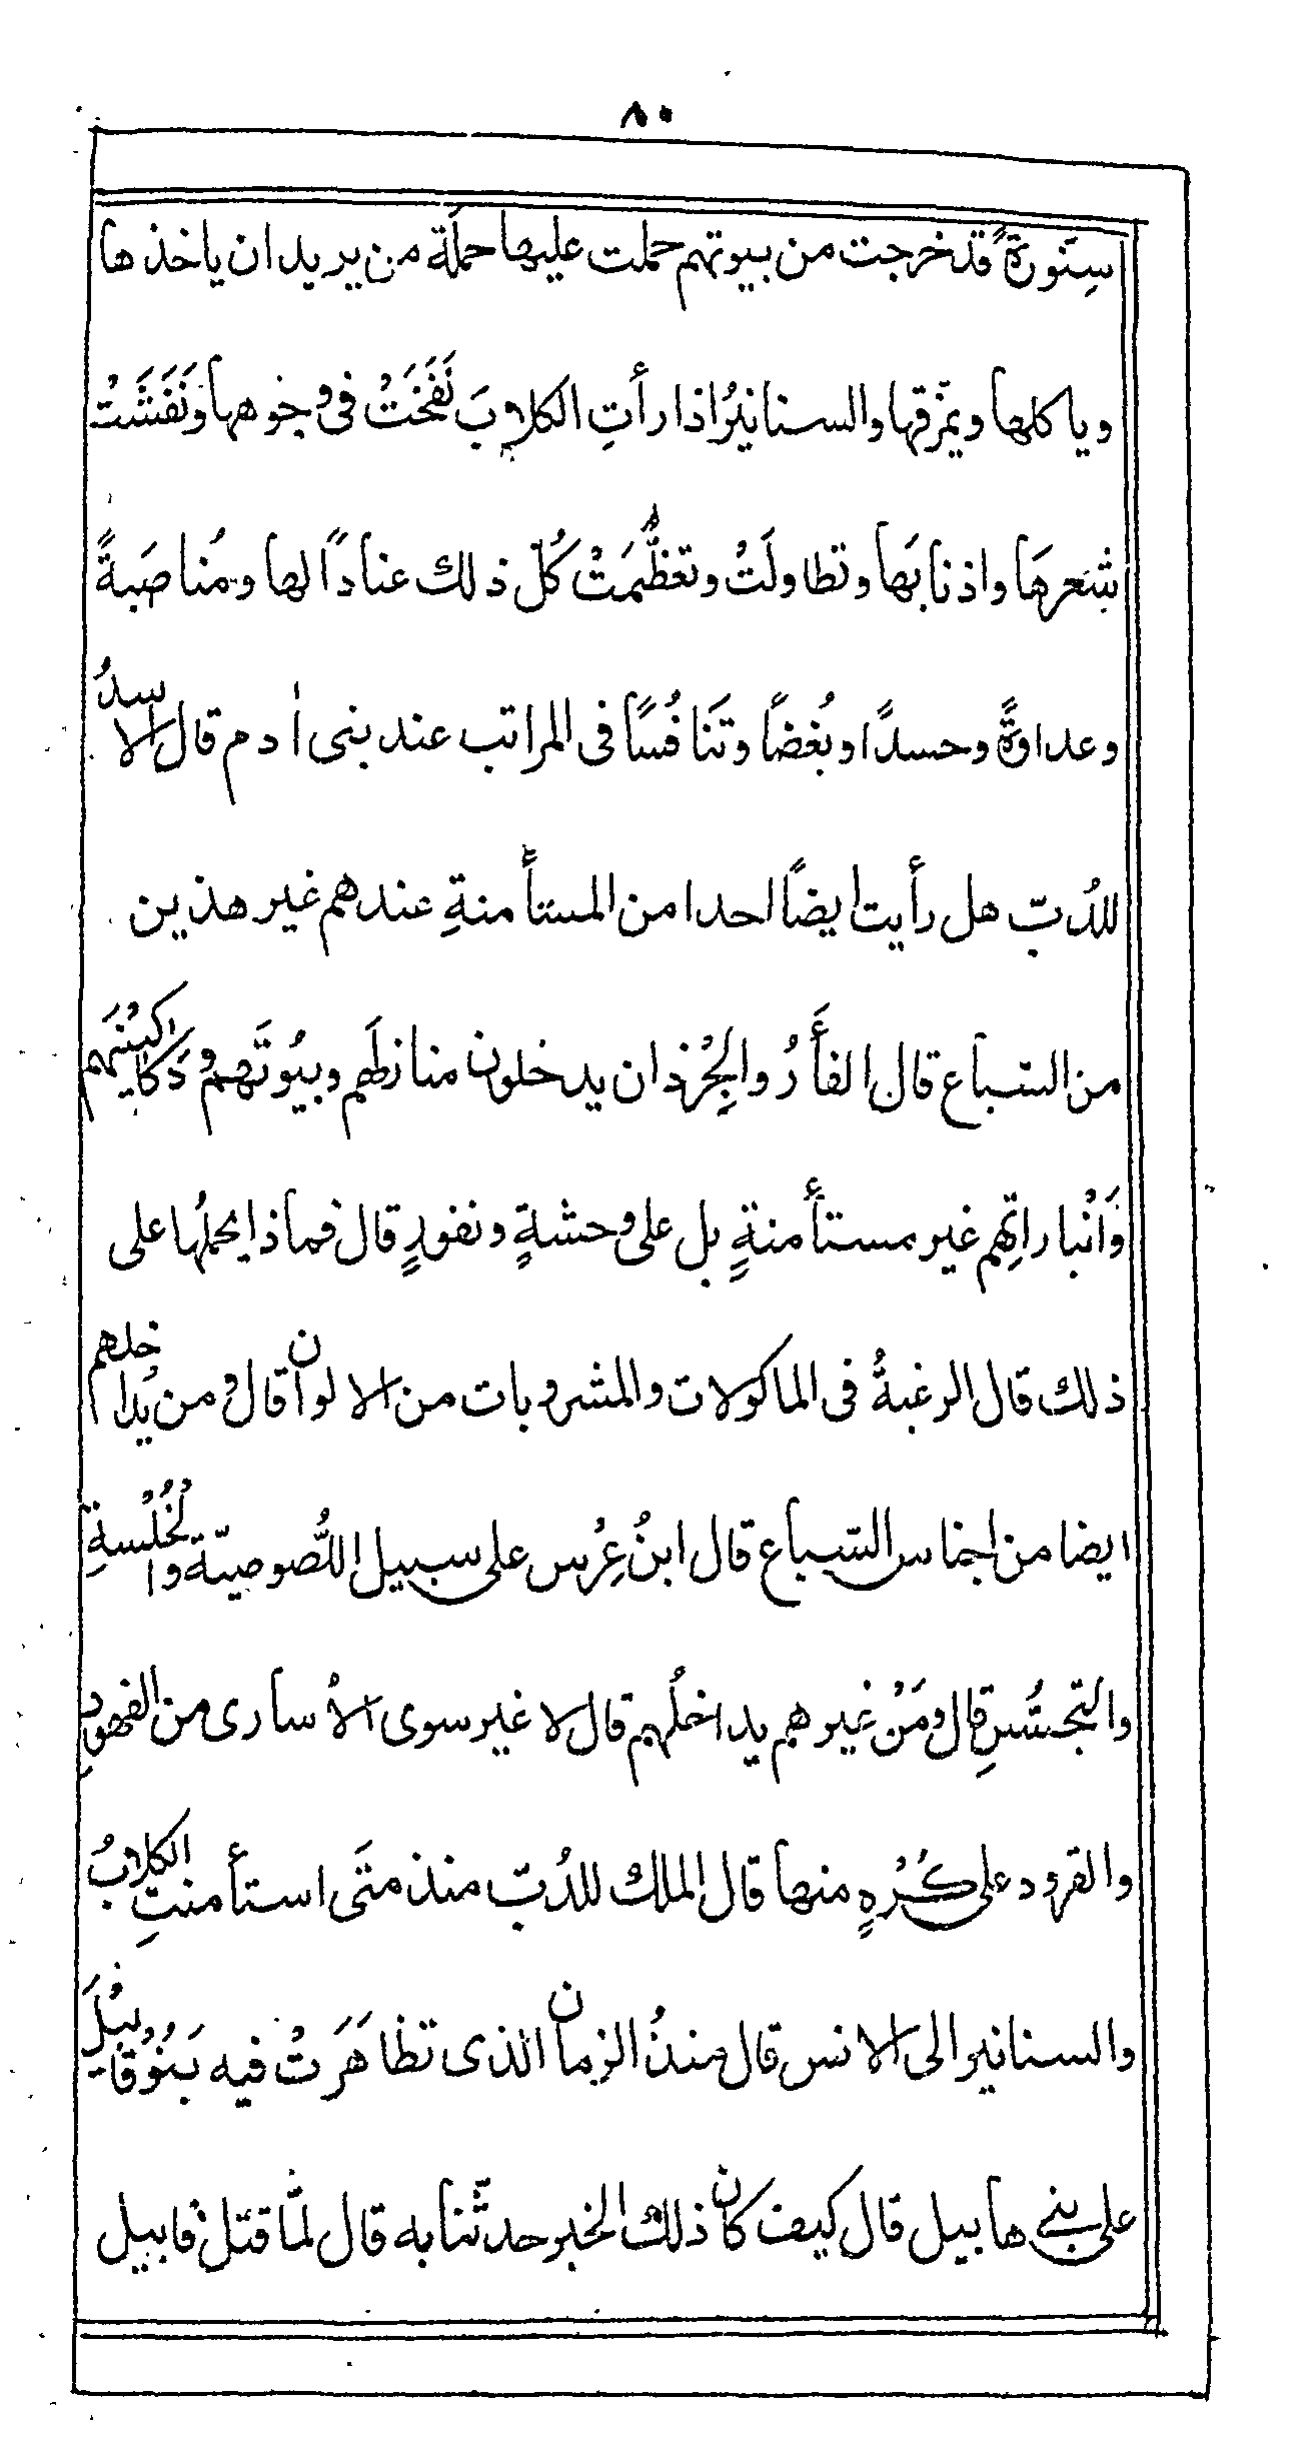 ٨٠
سِنّورةً قد خرجت من بيوتهم حملت عليها حملَة من يريد ان ياخذها
وياكلها ويمزّقها والسنانيرُ اذا رأتِ الكلابَ نَفَخَتْ فى وجوهها ونَفَشَتْ
شعرهَا واذنابَها وتطاولَتْ وتعظَّمَتْ كُلّ ذلك عنادًا لها ومُناصَبةً
وعداوةً وحسدًا وبُغضًا وتَنافُسًا فى المراتب عند بنى اٰدم قال الاسدُ
للدُبّ هل رأيت ايضًا احدا من المستأمنةِ عندهم غير هذين
من السّباع قال الفأَرُ والجِرُذان يدخلون منازلَهم وبيُوتَهم ودَكاكيْنَهم
وَاَنْباراتِهم غير مستأمنةٍ بل على وحشةٍ ونفورٍ قال فماذا يحملُها على
ذلك قال الرغبةُ فى الماكولات والمشروبات من الالوان قال ومن يُداخلهم
ايضا من اجناس السّباع قال ابنُ عِرُس على سبيل اللُّصوصيّة والخُلْسةِ
والتجسُّسِ قال ومَنْ غيرهم يداخلُهم قال لا غير سوى الاُسارى من الفهودِ
والقرود على كُرُهٍ منها قال الملك للدُبّ منذ متَى استأمنتِ الكلابُ
والسنانير الى الانس قال منذُ الزمان الذى تظاهَرَتْ فيه بَنُوْقابيْلَ
على بنى هابيل قال كيف كان ذلك الخبر حدثّنا به قال لمّا قتل قابيل